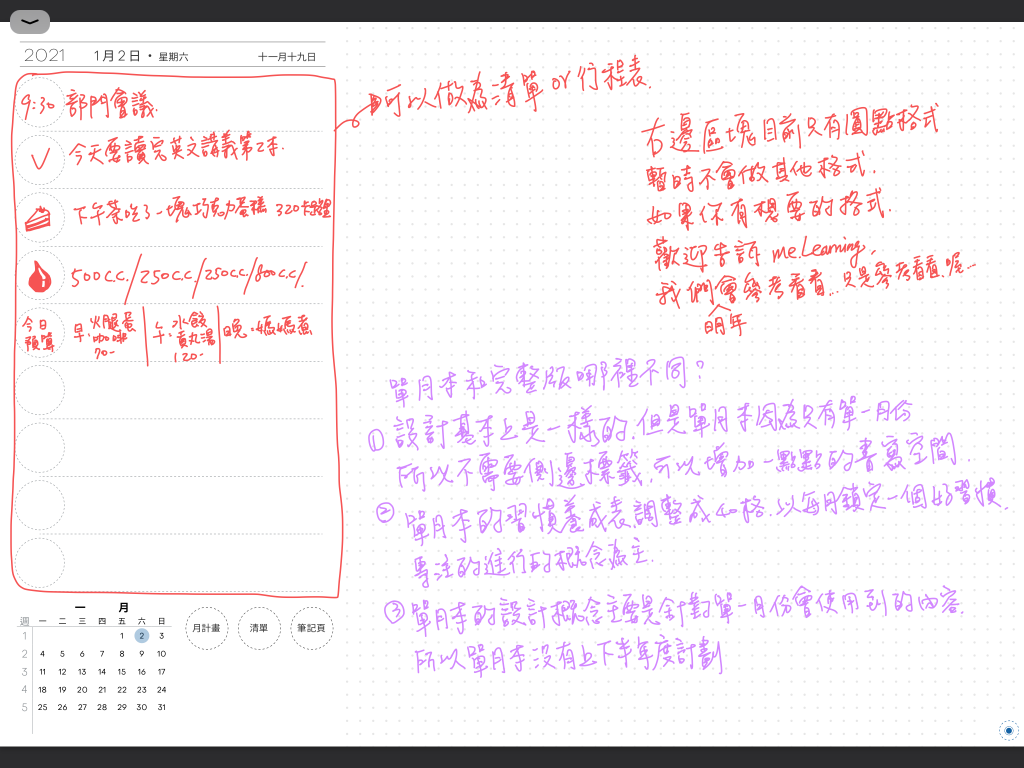 2021 1月2日・星期六 十一月十九日
9:30 部門會議.
今天要讀完英文講義第2本.
下午茶吃了一塊巧克力蛋糕 320卡
500c.c./250c.c./250c.c./800c.c./.
今日預算 早:火腿蛋 咖啡 70- 午:水餃 貢丸湯 120- 晚:媽媽煮
可以做為清單 or 行程表.
右邊區塊目前只有圓點格式
暫時不會做其他格式.
如果你有想要的格式.
歡迎告訴 me.Learning,
我們會參考看看...只是參考看看.喔...
明年
單月本和完整版哪裡不同?
① 設計基本上是一樣的.但是單月本因為只有單一月份
所以不需要側邊標籤,可以增加一點點的書寫空間.
② 單月本的習慣養成表調整成40格.以每月鎖定一個好習慣.
專注的進行的概念為主.
③ 單月本的設計概念主要是針對單一月份會使用到的內容.
所以單月本沒有上下半年度計劃
一 月
週 一 二 三 四 五 六 日
1 1 2 3
2 4 5 6 7 8 9 10
3 11 12 13 14 15 16 17
4 18 19 20 21 22 23 24
5 25 26 27 28 29 30 31
月計畫 清單 筆記頁